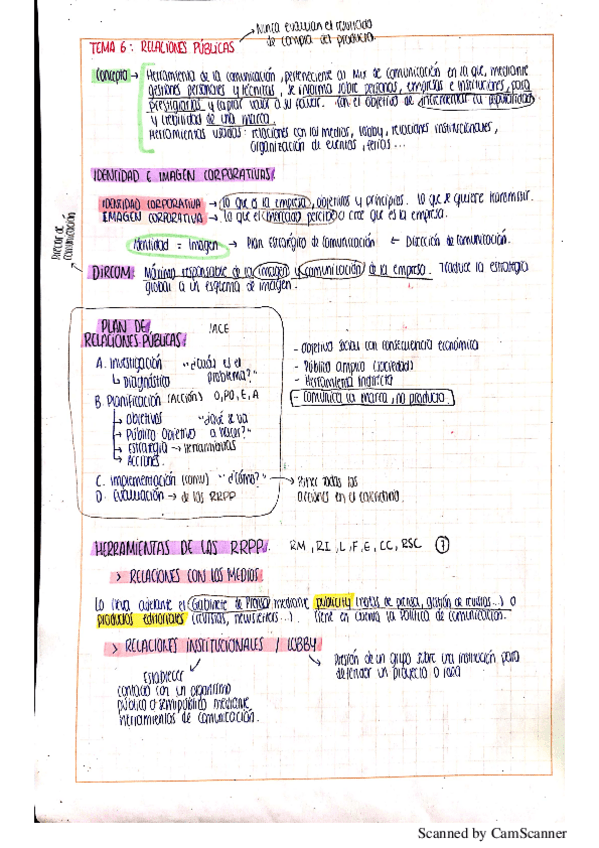 Nunca evaluan el resultado
de compra del producto.
TEMA 6: RELACIONES PÚBLICAS
Concepto → Herramienta de la comunicación, perteneciente al Mix de comunicación en la que, mediante
gestiones personales y técnicas, se informa sobre personas, empresas e instituciones, para
prestigiarlas y captar valor a su favor. Con el objetivo de incrementar su popularidad
y credibilidad de una marca.
Herramientas usadas: relaciones con los medios, lobby, relaciones institucionales,
organización de eventos, ferias...
IDENTIDAD E IMAGEN CORPORATIVAS
IDENTIDAD CORPORATIVA → lo que es la empresa, objetivos y principios. Lo que se quiere transmitir.
IMAGEN CORPORATIVA → lo que el mercado percibe o cree que es la empresa.
Identidad = Imagen → Plan estratégico de comunicación ← Dirección de comunicación.
Director de
comunicación
DIRCOM: Máximo responsable de la imagen y comunicación de la empresa. Traduce la estrategia
global a un esquema de imagen.
PLAN DE IACE
RELACIONES PÚBLICAS:
A. Investigación "¿Cuál es el
↳ Diagnóstico problema?"
B. Planificación (Acción) O, PO, E, A
↳ Objetivos "¿Qué se va
→ Público Objetivo a hacer?"
→ Estrategia → Herramientas
↳ Acciones.
C. Implementación (comu) "¿Cómo?" → Poner todas las
acciones en el calendario.
D. Evaluación → de las RRPP
- Objetivo social con consecuencia económica
- Público amplio (sociedad)
- Herramienta indirecta
- Comunica la marca, no producto.
HERRAMIENTAS DE LAS RRPP. RM, RI, L, F, E, CC, RSC 7
> RELACIONES CON LOS MEDIOS
Lo lleva adelante el Gabinete de Prensa mediante publicity (notas de prensa, gestión de revistas...) o
productos editoriales (revistas, newsletters...). Tiene en cuenta la Política de Comunicación.
> RELACIONES INSTITUCIONALES / LOBBY
Establecer
contacto con un organismo
público o semipúblico mediante
herramientas de comunicación.
Presión de un grupo sobre una institución para
defender un proyecto o idea
Scanned by CamScanner